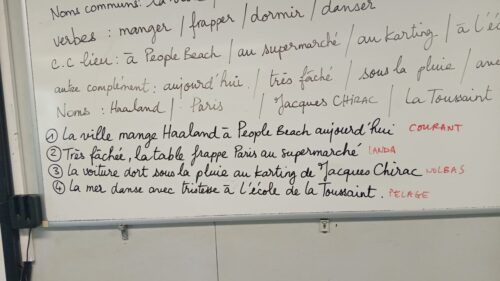 Noms communs: la vi
verbes : manger / frapper / dormir / danser
c.c lieu : à People Beach / au supermarché / au Karting / à l'é
autre complément : aujourd'hui / très fâché / sous la pluie / ave
Noms : Haaland / Paris / Jacques CHIRAC / La Toussaint
① La ville mange Haaland à People Beach aujourd'hui COURANT
② Très fâchée, la table frappe Paris au supermarché LANDA
③ La voiture dort sous la pluie au Karting de Jacques Chirac NOLBAS
④ La mer danse avec tristesse à l'école de la Toussaint. PELAGE